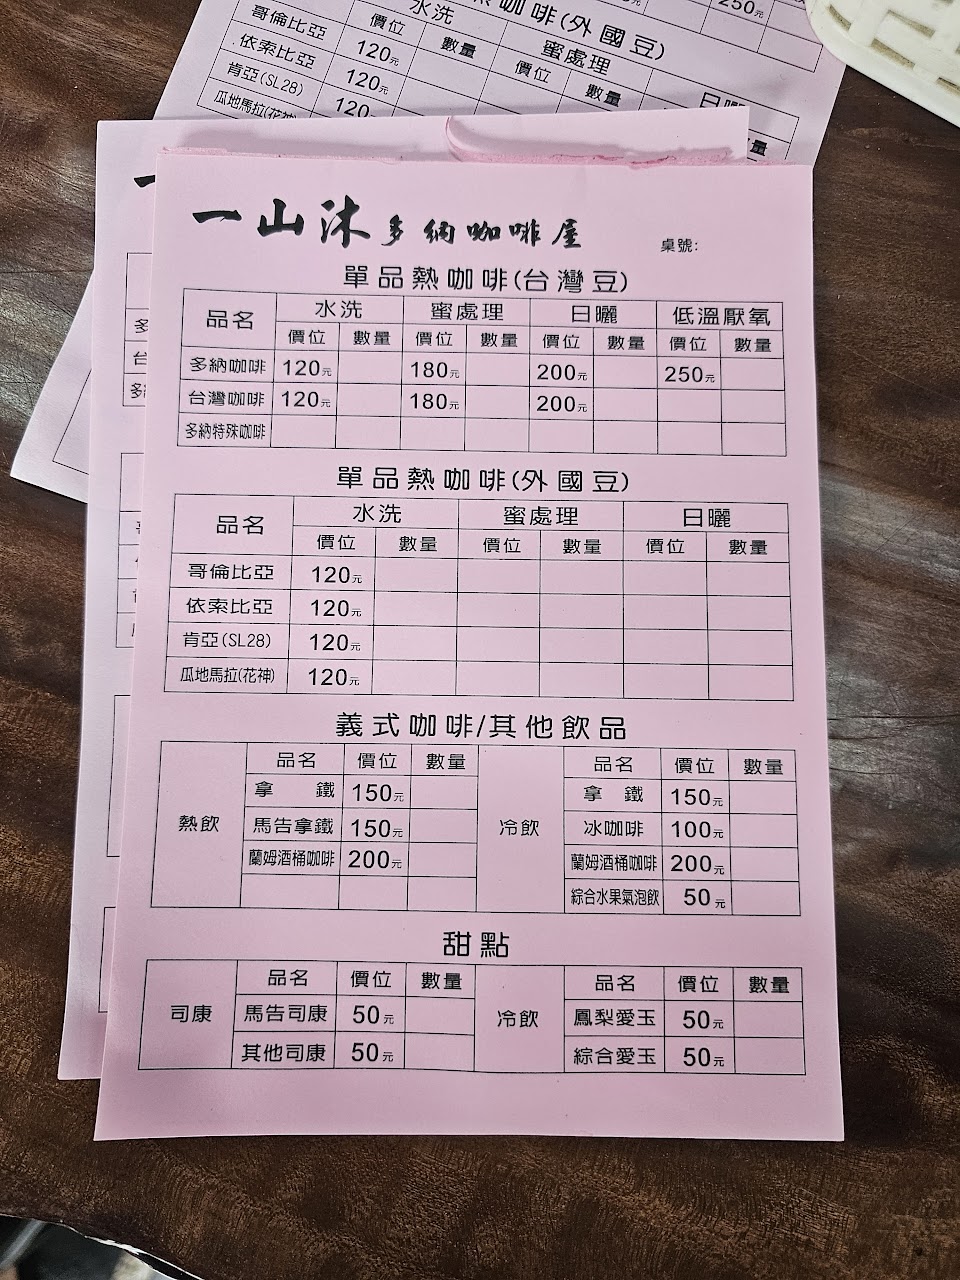 哥倫比亞 價位 水洗 咖啡(外國豆) 250元
依索比亞 120元 數量 蜜處理
肯亞(SL28) 120元 價位 數量 日曬
瓜地馬拉(花神) 120
一山沐多納咖啡屋 桌號:
單品熱咖啡(台灣豆)
品名 水洗 蜜處理 日曬 低溫厭氧
價位 數量 價位 數量 價位 數量 價位 數量
多納咖啡 120元 180元 200元 250元
台灣咖啡 120元 180元 200元
多納特殊咖啡
單品熱咖啡(外國豆)
品名 水洗 蜜處理 日曬
價位 數量 價位 數量 價位 數量
哥倫比亞 120元
依索比亞 120元
肯亞(SL28) 120元
瓜地馬拉(花神) 120元
義式咖啡/其他飲品
品名 價位 數量 品名 價位 數量
熱飲 拿鐵 150元 冷飲 拿鐵 150元
馬告拿鐵 150元 冰咖啡 100元
蘭姆酒桶咖啡 200元 蘭姆酒桶咖啡 200元
綜合水果氣泡飲 50元
甜點
品名 價位 數量 品名 價位 數量
司康 馬告司康 50元 冷飲 鳳梨愛玉 50元
其他司康 50元 綜合愛玉 50元